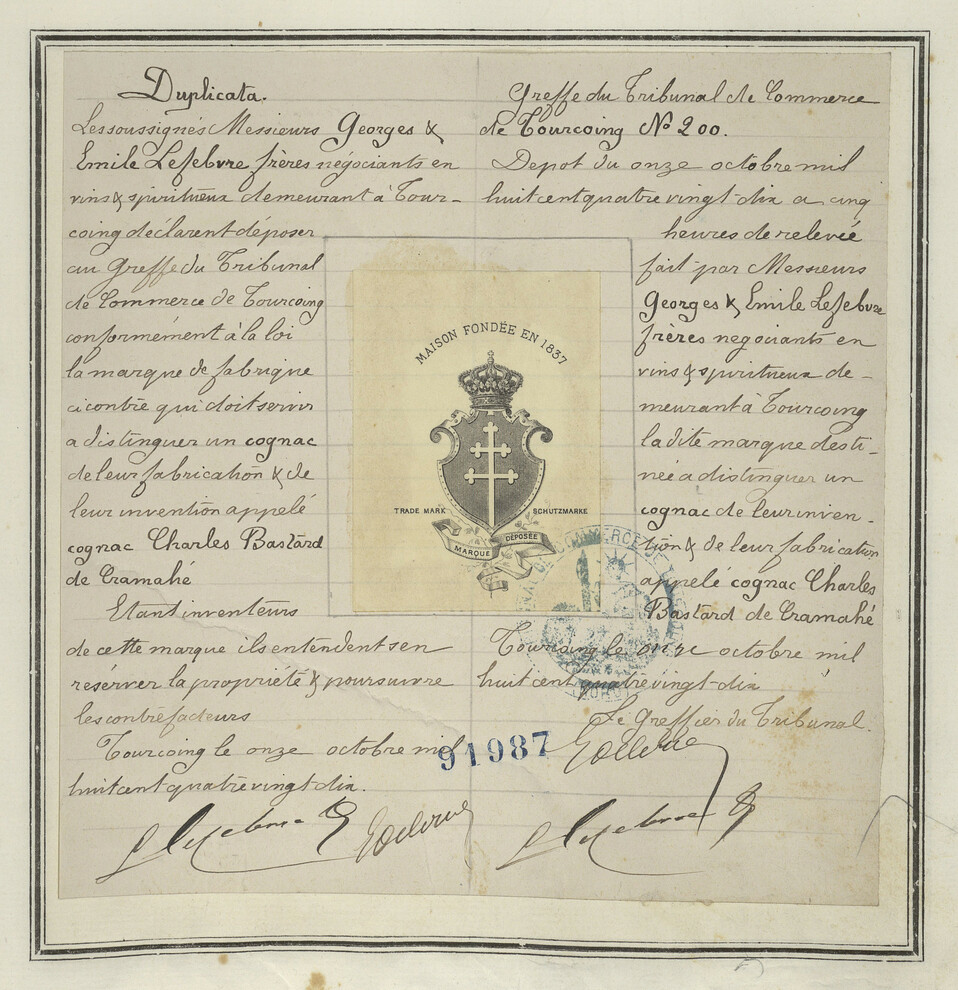 Duplicata.
Les soussignés Messieurs Georges &
Emile Lefebvre frères négociants en
vins & spiritueux demeurant à Tour-
coing déclarent déposer
au Greffe du Tribunal
de Commerce de Tourcoing
conformément à la loi
la marque de fabrique
ci contre qui doit servir
a distinguer un cognac
de leur fabrication & de
leur invention appelé
cognac Charles Bastard
de Cramahé
Etant inventeurs
de cette marque ils entendent s'en
réserver la propriété & poursuivre
les contrefacteurs
Tourcoing le onze octobre mil
huit cent quatre vingt dix.
Greffe du Tribunal de Commerce
de Tourcoing No 200.
Depot du onze octobre mil
huit cent quatre vingt dix a cinq
heures de relevée
fait par Messieurs
Georges & Emile Lefebvre
frères negociants en
vins & spiritueux de-
meurant à Tourcoing
la dite marque desti-
née a distinguer un
cognac de leur inven-
tion & de leur fabrication
appelé cognac Charles
Bastard de Cramahé
Tourcoing le onze octobre mil
huit cent quatre vingt dix
Le Greffier du Tribunal.
MAISON FONDÉE EN 1837
TRADE MARK SCHUTZMARKE
MARQUE DÉPOSÉE
91987